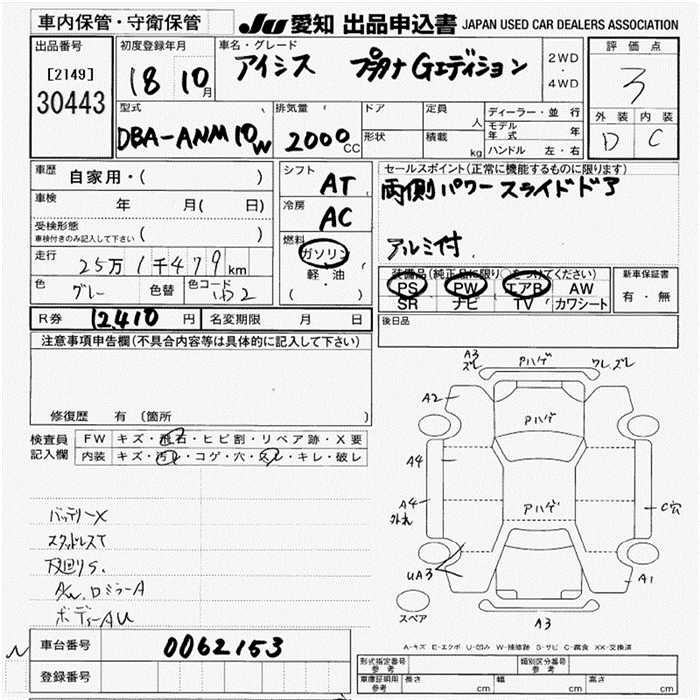 車内保管・守衛保管
JU 愛知 出品申込書 JAPAN USED CAR DEALERS ASSOCIATION
出品番号
[2149]
30443
初度登録年月
18 10月
車名・グレード
アイシス プラタナ Gエディション
2WD・4WD
評価点
3
外装 内装
D C
型式
DBA-ANM10W
排気量
2000CC
ドア
形状
定員 人
積載 kg
ディーラー・並行
モデル年式 年
ハンドル 左・右
車歴 自家用・( )
車検 年 月( 日)
受検形態
車検付きのみ記入して下さい ( )
走行 25万1千479km
色 グレー 色替 色コード
シフト AT
冷房 AC
燃料
ガソリン
軽・油
( )
セールスポイント(正常に機能するものに限ります)
両側パワースライドドア
アルミ付
装備品(純正品に限り○をつけてください)
PS PW エアB AW
SR ナビ TV カワシート
新車保証書
有・無
R券 12,410円 名変期限 月 日
後日品
注意事項申告欄(不具合内容等は具体的に記入して下さい)
修復歴 有(箇所 )
検査員記入欄
FW キズ・飛石・ヒビ割・リペア跡・X要
内装 キズ・汚レ・コゲ・穴・スレ・キレ・破レ
バッテリーX
スタッドレスT
A/W、ロミラーA
ボディーAU
A3
ズレ
Pハゲ
ワレ、ズレ
A2
Pハゲ
A4
A4
Pハゲ
C穴
UA3
A1
スペア
A3
A-キズ E-エクボ U-凹み W-補修跡 S-サビ C-腐食 XX-交換済
車台番号 0062153
登録番号
型式指定番号
参考
類別区分番号
参考
車庫証明用
参考
長さ cm 幅 cm 高さ cm